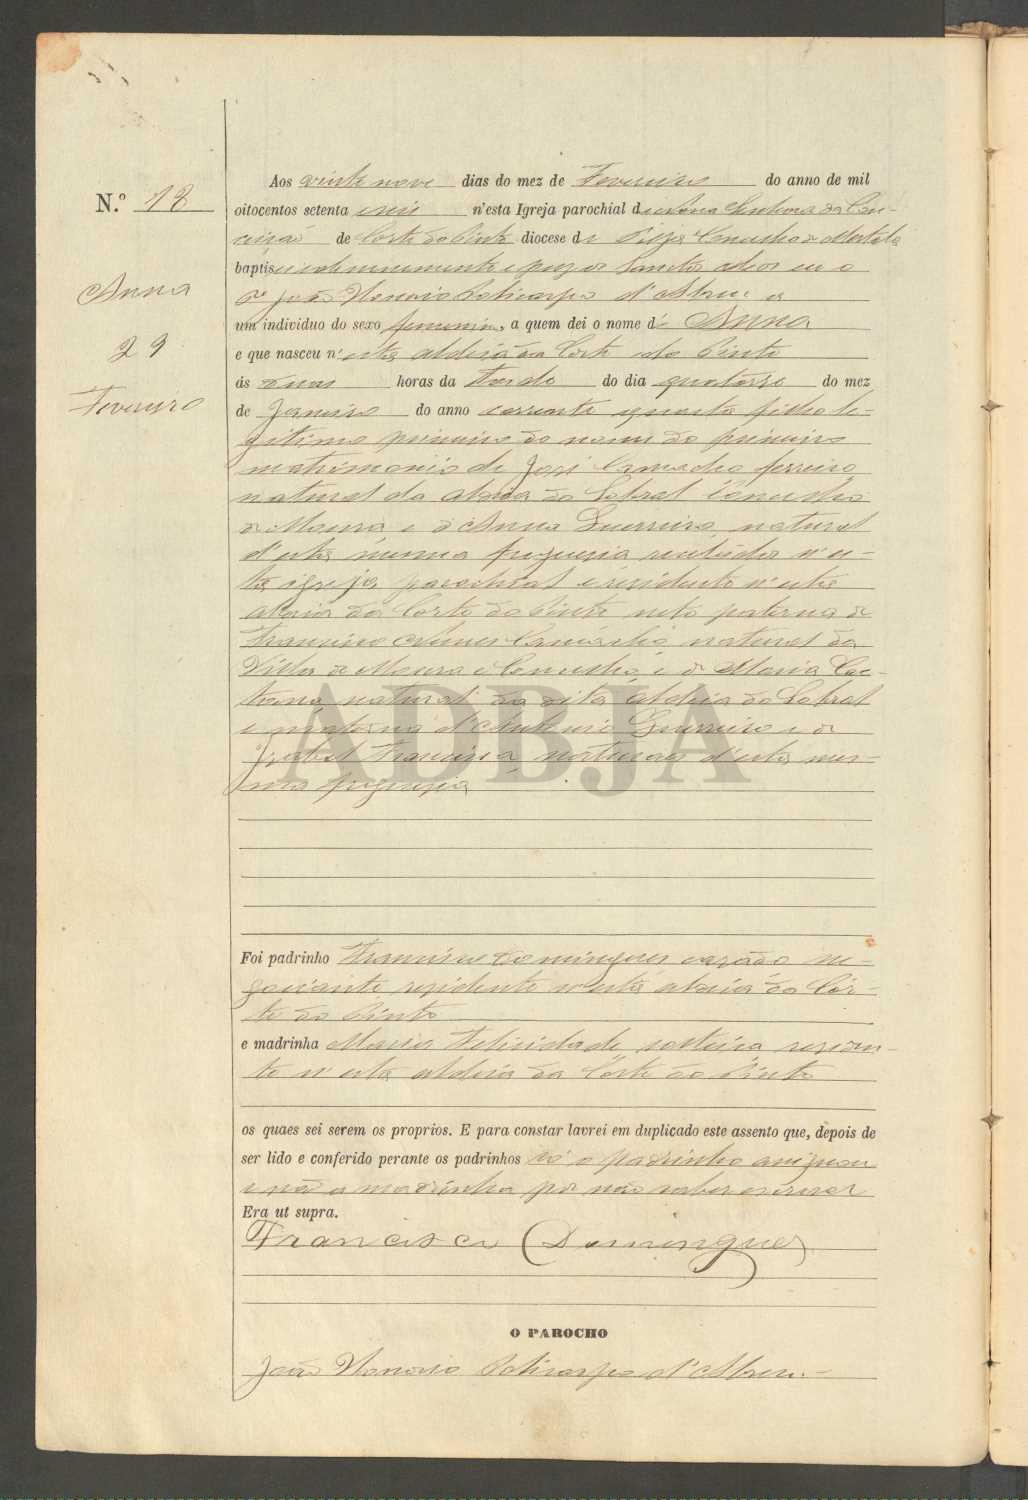 N.º 18
Anna
29
Fevereiro
Aos vinte nove dias do mez de Fevereiro do anno de mil
oitocentos setenta e seis n'esta Igreja parochial de Nossa Senhora da Con-
ceição de Corte do Pinto diocese de Beja Concelho de Mertola
baptisei solemnemente e puz os Sanctos oleos eu o
P.e João Honorio Policarpo d'Abreu a
um individuo do sexo femenino, a quem dei o nome de Anna
e que nasceu n'esta aldeia da Corte do Pinto
ás duas horas da Tarde do dia quatorze do mez
de Janeiro do anno corrente filha le-
gitima primeira do nome do primeiro
matrimonio de José Camacho ferreiro
natural da aldeia do Sobral Concelho
de Moura e de Anna Guerreiro natural
d'esta mesma freguesia recebidos n'es-
ta igreja parochial e residente n'esta
aldeia da Corte do Pinto neta paterna de
Francisco Camacho natural da
Villa de Moura e Concelho e de Maria Cae-
tana natural da dita aldeia do Sobral
e materna d'Antonio Guerreiro e de
Izabel Francisca naturaes d'esta mes-
ma freguesia
ADBJA
Foi padrinho Francisco Domingues cazado ne-
gociante rezidente n'esta aldeia da Cor-
te do Pinto
e madrinha Maria Felicidade solteira reziden-
te n'esta aldeia da Corte do Pinto
os quaes sei serem os proprios. E para constar lavrei em duplicado este assento que, depois de
ser lido e conferido perante os padrinhos só o padrinho assignou
e não a madrinha por não saber escrever
Era ut supra.
Francisco Domingues
O PAROCHO
João Honorio Policarpo d'Abreu